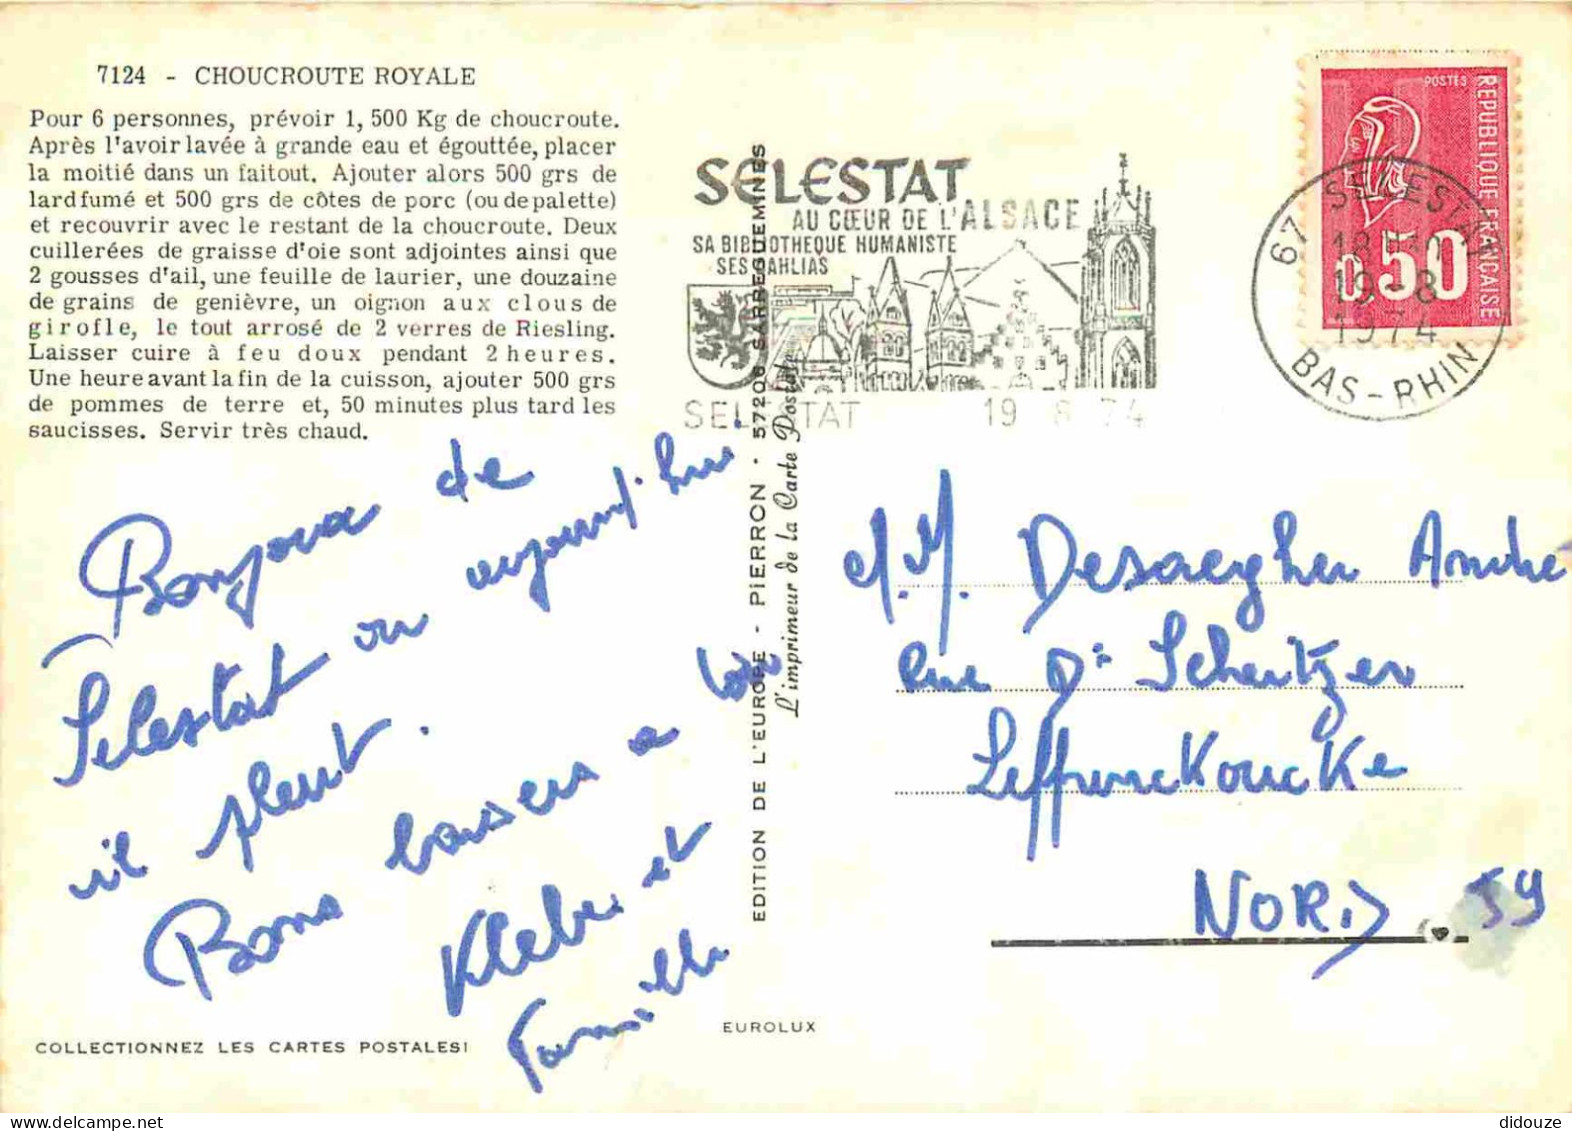 7124 - CHOUCROUTE ROYALE
Pour 6 personnes, prévoir 1, 500 Kg de choucroute.
Après l'avoir lavée à grande eau et égouttée, placer
la moitié dans un faitout. Ajouter alors 500 grs de
lard fumé et 500 grs de côtes de porc (ou de palette)
et recouvrir avec le restant de la choucroute. Deux
cuillerées de graisse d'oie sont adjointes ainsi que
2 gousses d'ail, une feuille de laurier, une douzaine
de grains de genièvre, un oignon aux clous de
girofle, le tout arrosé de 2 verres de Riesling.
Laisser cuire à feu doux pendant 2 heures.
Une heure avant la fin de la cuisson, ajouter 500 grs
de pommes de terre et, 50 minutes plus tard les
saucisses. Servir très chaud.
Bonjour de
Sélestat ou aujourd'hui
il pleut.
Bons baisers a
Kleber et
Famille
COLLECTIONNEZ LES CARTES POSTALES!
EDITION DE L'EUROPE - PIERRON - 57206 SARREGUEMINES
L'imprimeur de la Carte Postale
EUROLUX
SELESTAT
AU CŒUR DE L'ALSACE
SA BIBLIOTHEQUE HUMANISTE
SES DAHLIAS
SELESTAT 19 8 74
POSTES
REPUBLIQUE FRANÇAISE
0,50
67 SELESTAT
18H30
19-8
1974
BAS-RHIN
M.M. Desaegher Andre
rue Dr Scheitzer
Leffrinckoucke
NORD 59
didouze